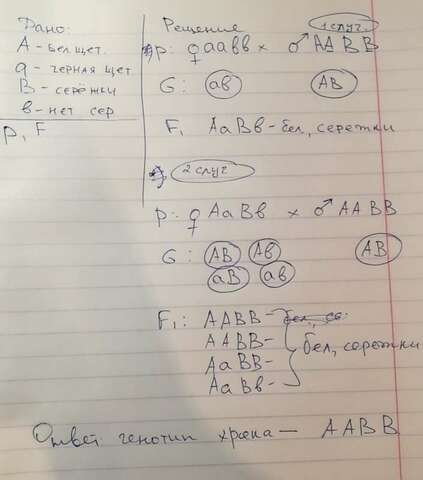 Дано:
А - бел щет.
а - черная щет
В - серёжки
в - нет сер
P, F
Решение
1 случ.
P: ♀ аавв × ♂ ААВВ
G: ав АВ
F₁ АаВв - бел, сережки
2 случ
P: ♀ АаВв × ♂ ААВВ
G: АВ Ав АВ
аВ ав
F₁: ААВВ -
ААВВ -
АаВВ -
АаВв -
бел, сережки
Ответ генотип хряка — ААВВ